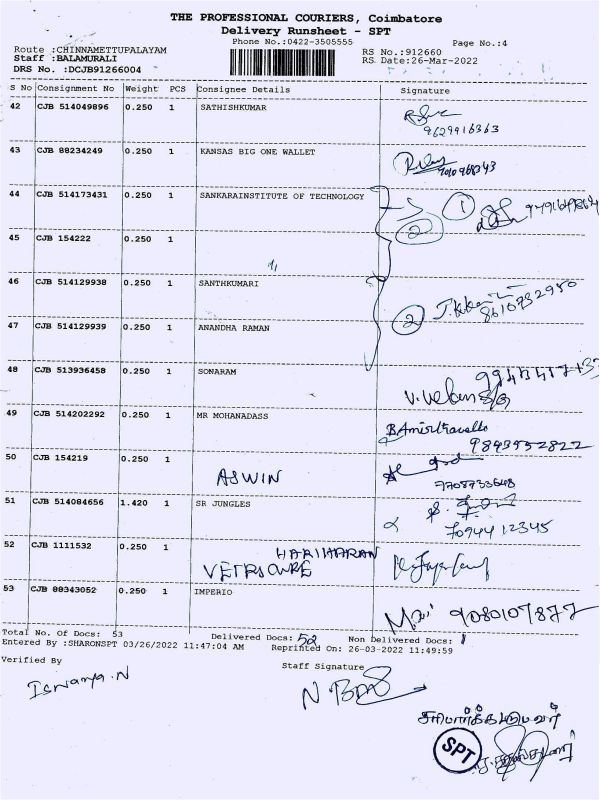 THE PROFESSIONAL COURIERS, Coimbatore
Delivery Runsheet - SPT
Phone No.:0422-3505555
Page No.:4
Route :CHINNAMETTUPALAYAM
RS No.:912660
Staff :BALAMURALI
RS Date:26-Mar-2022
DRS No. :DCJB91266004
S No Consignment No Weight PCS Consignee Details Signature
42 CJB 514049896 0.250 1 SATHISHKUMAR
9629916363
43 CJB 88234249 0.250 1 KANSAS BIG ONE WALLET
44 CJB 514173431 0.250 1 SANKARAINSTITUTE OF TECHNOLOGY
1
2
45 CJB 154222 0.250 1
46 CJB 514129938 0.250 1 SANTHKUMARI
8610782950
2
47 CJB 514129939 0.250 1 ANANDHA RAMAN
48 CJB 513936458 0.250 1 SONARAM
49 CJB 514202292 0.250 1 MR MOHANADASS
9843952822
50 CJB 154219 0.250 1 ASWIN
7708733648
51 CJB 514084656 1.420 1 SR JUNGLES
7094412345
52 CJB 1111532 0.250 1 HARIHARAN
53 CJB 88343052 0.250 1 IMPERIO
9080107877
Total No. Of Docs: 53 Delivered Docs: 52 Non Delivered Docs: 1
Entered By :SHARONSPT 03/26/2022 11:47:04 AM Reprinted On: 26-03-2022 11:49:59
Verified By
Staff Signature
Iswarya.N
சரிபார்க்கப்பட்டவர்
SPT